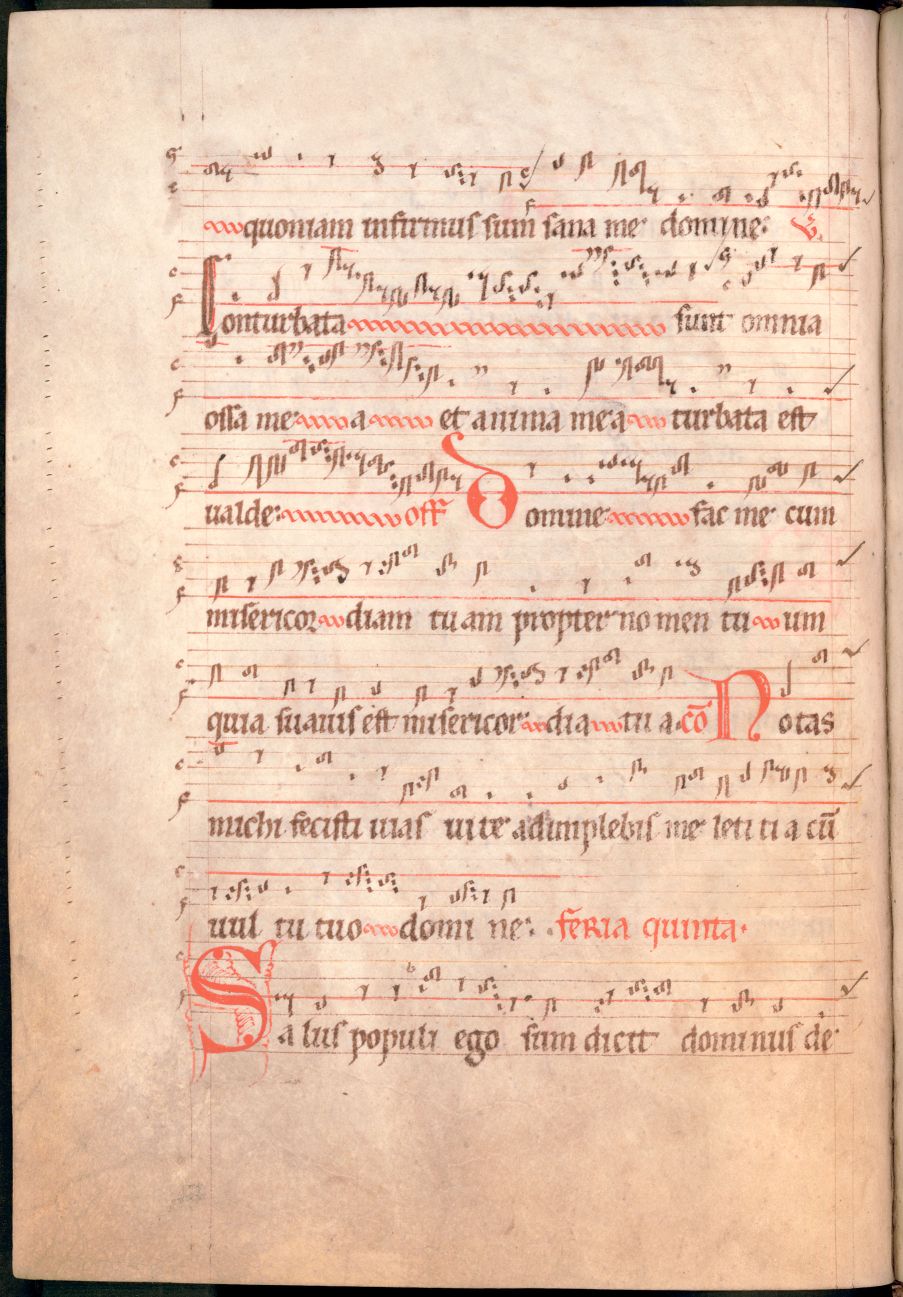 quoniam infirmus sum sana me domine. V.
Conturbata sunt omnia
ossa me a et anima mea turbata est
ualde. off Domine fac me cum
misericor diam tu am propter no men tu um
quia suauis est misericor dia tu a. co Notas
michi fecisti uias uite adimplebis me leti ti a cū
uul tu tuo domi ne. feria quinta.
Sa lus populi ego sum dicit dominus de